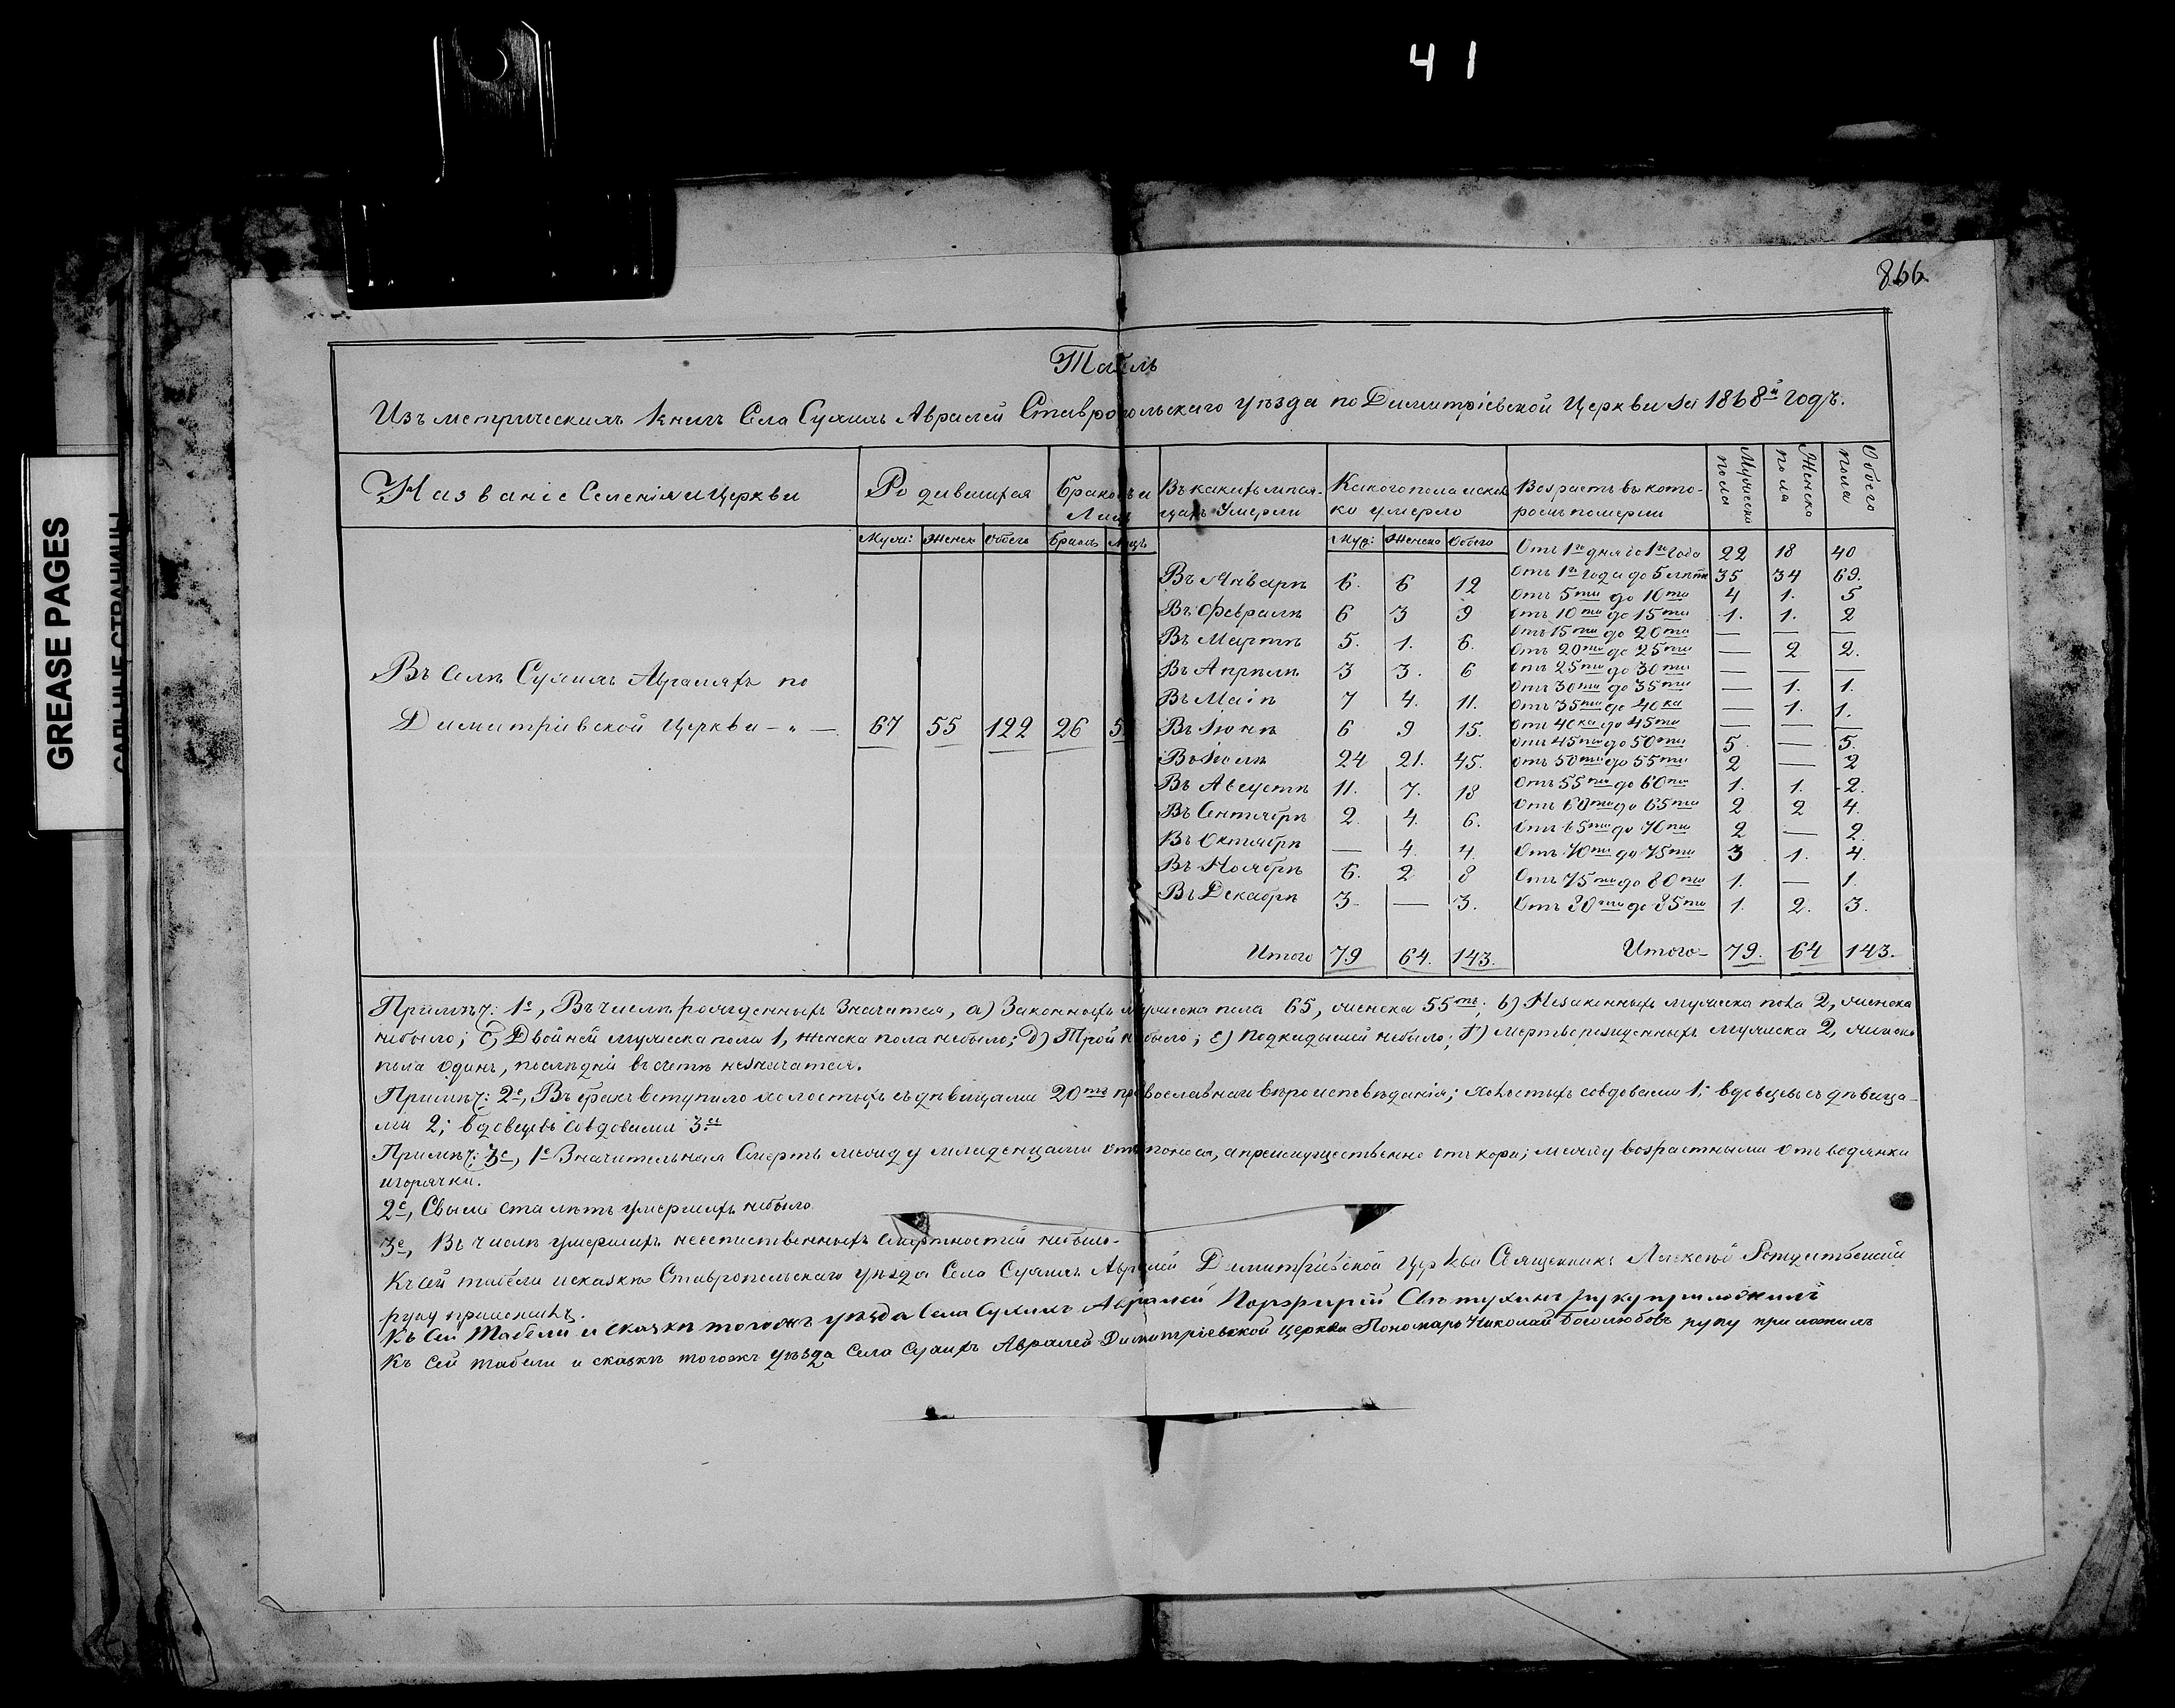 41
866
GREASE PAGES
Табель
Изъ метрическихъ книгъ Села Сухихъ Авралей Ставропольскаго уѣзда по Димитріевской Церкви за 1868й годъ.
Названіе Селенія и Церкви
Родившихся
Браковъ и Лицъ
Въ какихъ мѣсяцахъ Умерли
Какого пола и сколько умерло
Возрастъ въ которомъ померли
Мужеска пола
Женска пола
Обоего пола
Муж: Женск Обоего Браковъ Лицъ Муж: Женска Обоего
Отъ 1го дня до 1го года 22 18 40
Въ Январѣ 6. 6 12
Отъ 1го года до 5 лѣтъ 35 34 69.
Отъ 5ти до 10ти 4 1. 5
Въ Февралѣ 6 3 9
Отъ 10ти до 15ти 1. 1. 2
Въ Мартѣ 5. 1. 6.
Отъ 15ти до 20ти — — —
Отъ 20ти до 25ти — 2 2.
Въ Апрѣлѣ 3 3. 6
Отъ 25ти до 30ти — — —
Отъ 30ти до 35ти — 1. 1.
Въ Маіѣ 7 4. 11.
Отъ 35ти до 40ка — 1. 1.
Въ Селѣ Сухихъ Авраляхъ по
Димитріевской Церкви — „ — 67 55 122 26 5
Въ Іюнѣ 6 9 15.
Отъ 40ка до 45ти — — —
Отъ 45ти до 50ти 5 — 5.
Въ Іюлѣ 24 21. 45.
Отъ 50ти до 55ти 2 — 2
Въ Августѣ 11. 7. 18
Отъ 55ти до 60ти 1. 1. 2.
Въ Сентябрѣ 2. 4. 6.
Отъ 60ти до 65ти 2 2 4.
Отъ 65ти до 70ти 2 — 2.
Въ Октябрѣ — 4. 4.
Отъ 70ти до 75ти 3 1. 4.
Въ Ноябрѣ 6. 2 8
Отъ 75ти до 80ти 1. — 1.
Въ Декабрѣ 3. — 3.
Отъ 80ти до 85ти 1. 2. 3.
Итого 79 64. 143. Итого 79. 64 143.
Примѣч: 1е, Въ числѣ рожденныхъ Значится, а) Законныхъ мужеска пола 65, женска 55ть; b) Незаконныхъ мужеска пола 2, женска
небыло; c) Двойней мужеска пола 1, женска пола небыло; d) Трой небыло; e) Подкидышей небыло; f) мертворожденныхъ мужеска 2, женска
пола одинъ, послѣдніи въ счетъ незначатся.
Примѣч: 2е, Въ бракъ вступило холостыхъ съ дѣвицами 20ть православнаго вѣроисповѣданія; холостыхъ со вдовами 1; вдовцевъ съ дѣвица-
ми 2; вдовцевъ со вдовами 3.
Примѣч: 3е, 1е Значительная Смерть между младенцами отъ поноса, а преимущественно отъ кори; между возрастными отъ водянки
и горячки.
2е, Свыше ста лѣтъ умершихъ небыло.
3е, Въ числѣ умершихъ неестественныхъ смертностей небыло.
Къ сей табели и сказкѣ Ставропольскаго уѣзда Села Сухихъ Авралей Димитріевской Церкви Священникъ Алексѣй Рождественскій
руку приложилъ.
Къ сей Табели и сказкѣ тогожъ уѣзда Села Сухихъ Авралей Порфирій руку приложилъ
Къ сей табели и сказкѣ тогожъ уѣзда Села Сухихъ Авралей Димитріевской церкви Пономарь Николай Боголюбовъ руку приложилъ